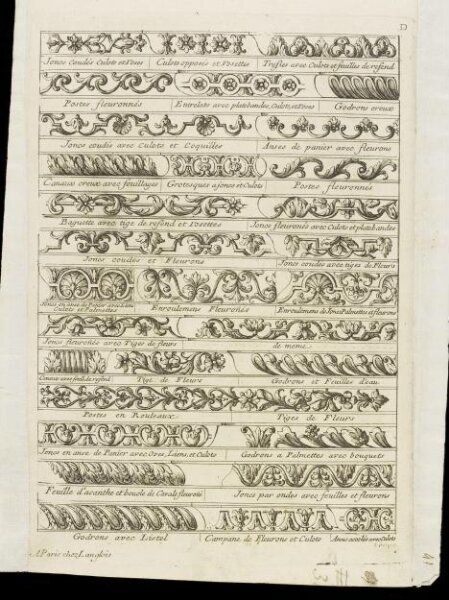 D
Joncs Coudés Culots et Roses Culots opposés et Rosettes Trefles avec Culots et feuilles de refend
Postes fleuronnés Entrelats avec platebandes, Culots, et Roses Godrons creux
Joncs coudis avec Culots et Coquilles Anses de panier avec fleurons
Canaux creux avec feuillages Grotesques a joncs et Culots Postes fleuronnés
Baguette avec tige de refend et Rosettes Joncs fleuronés avec Culots et platebandes
Joncs coudés et Fleurons Joncs coudés avec tiges de Fleurs
Joncs en anse de Panier Culots et Palmettes Enroulemens Fleuronés Enroulemens de Joncs Palmettes et fleurons
Joncs fleuronés avec Tiges de fleurs de meme
Canaux avec feuille de refend Tige de Fleurs Godrons et Feuilles d'eau
Postes en Rouleaux Tiges de Fleurs
Joncs en anse de Panier avec Oves, Liens, et Culots Godrons a Palmettes avec bouquets
Feuille d'acanthe et boucle de Corals fleuroné Joncs par ondes avec feuilles et fleurons
Godrons avec Listel Campane de Fleurons et Culots Anses accolés avec Culots
A Paris chez Langlois